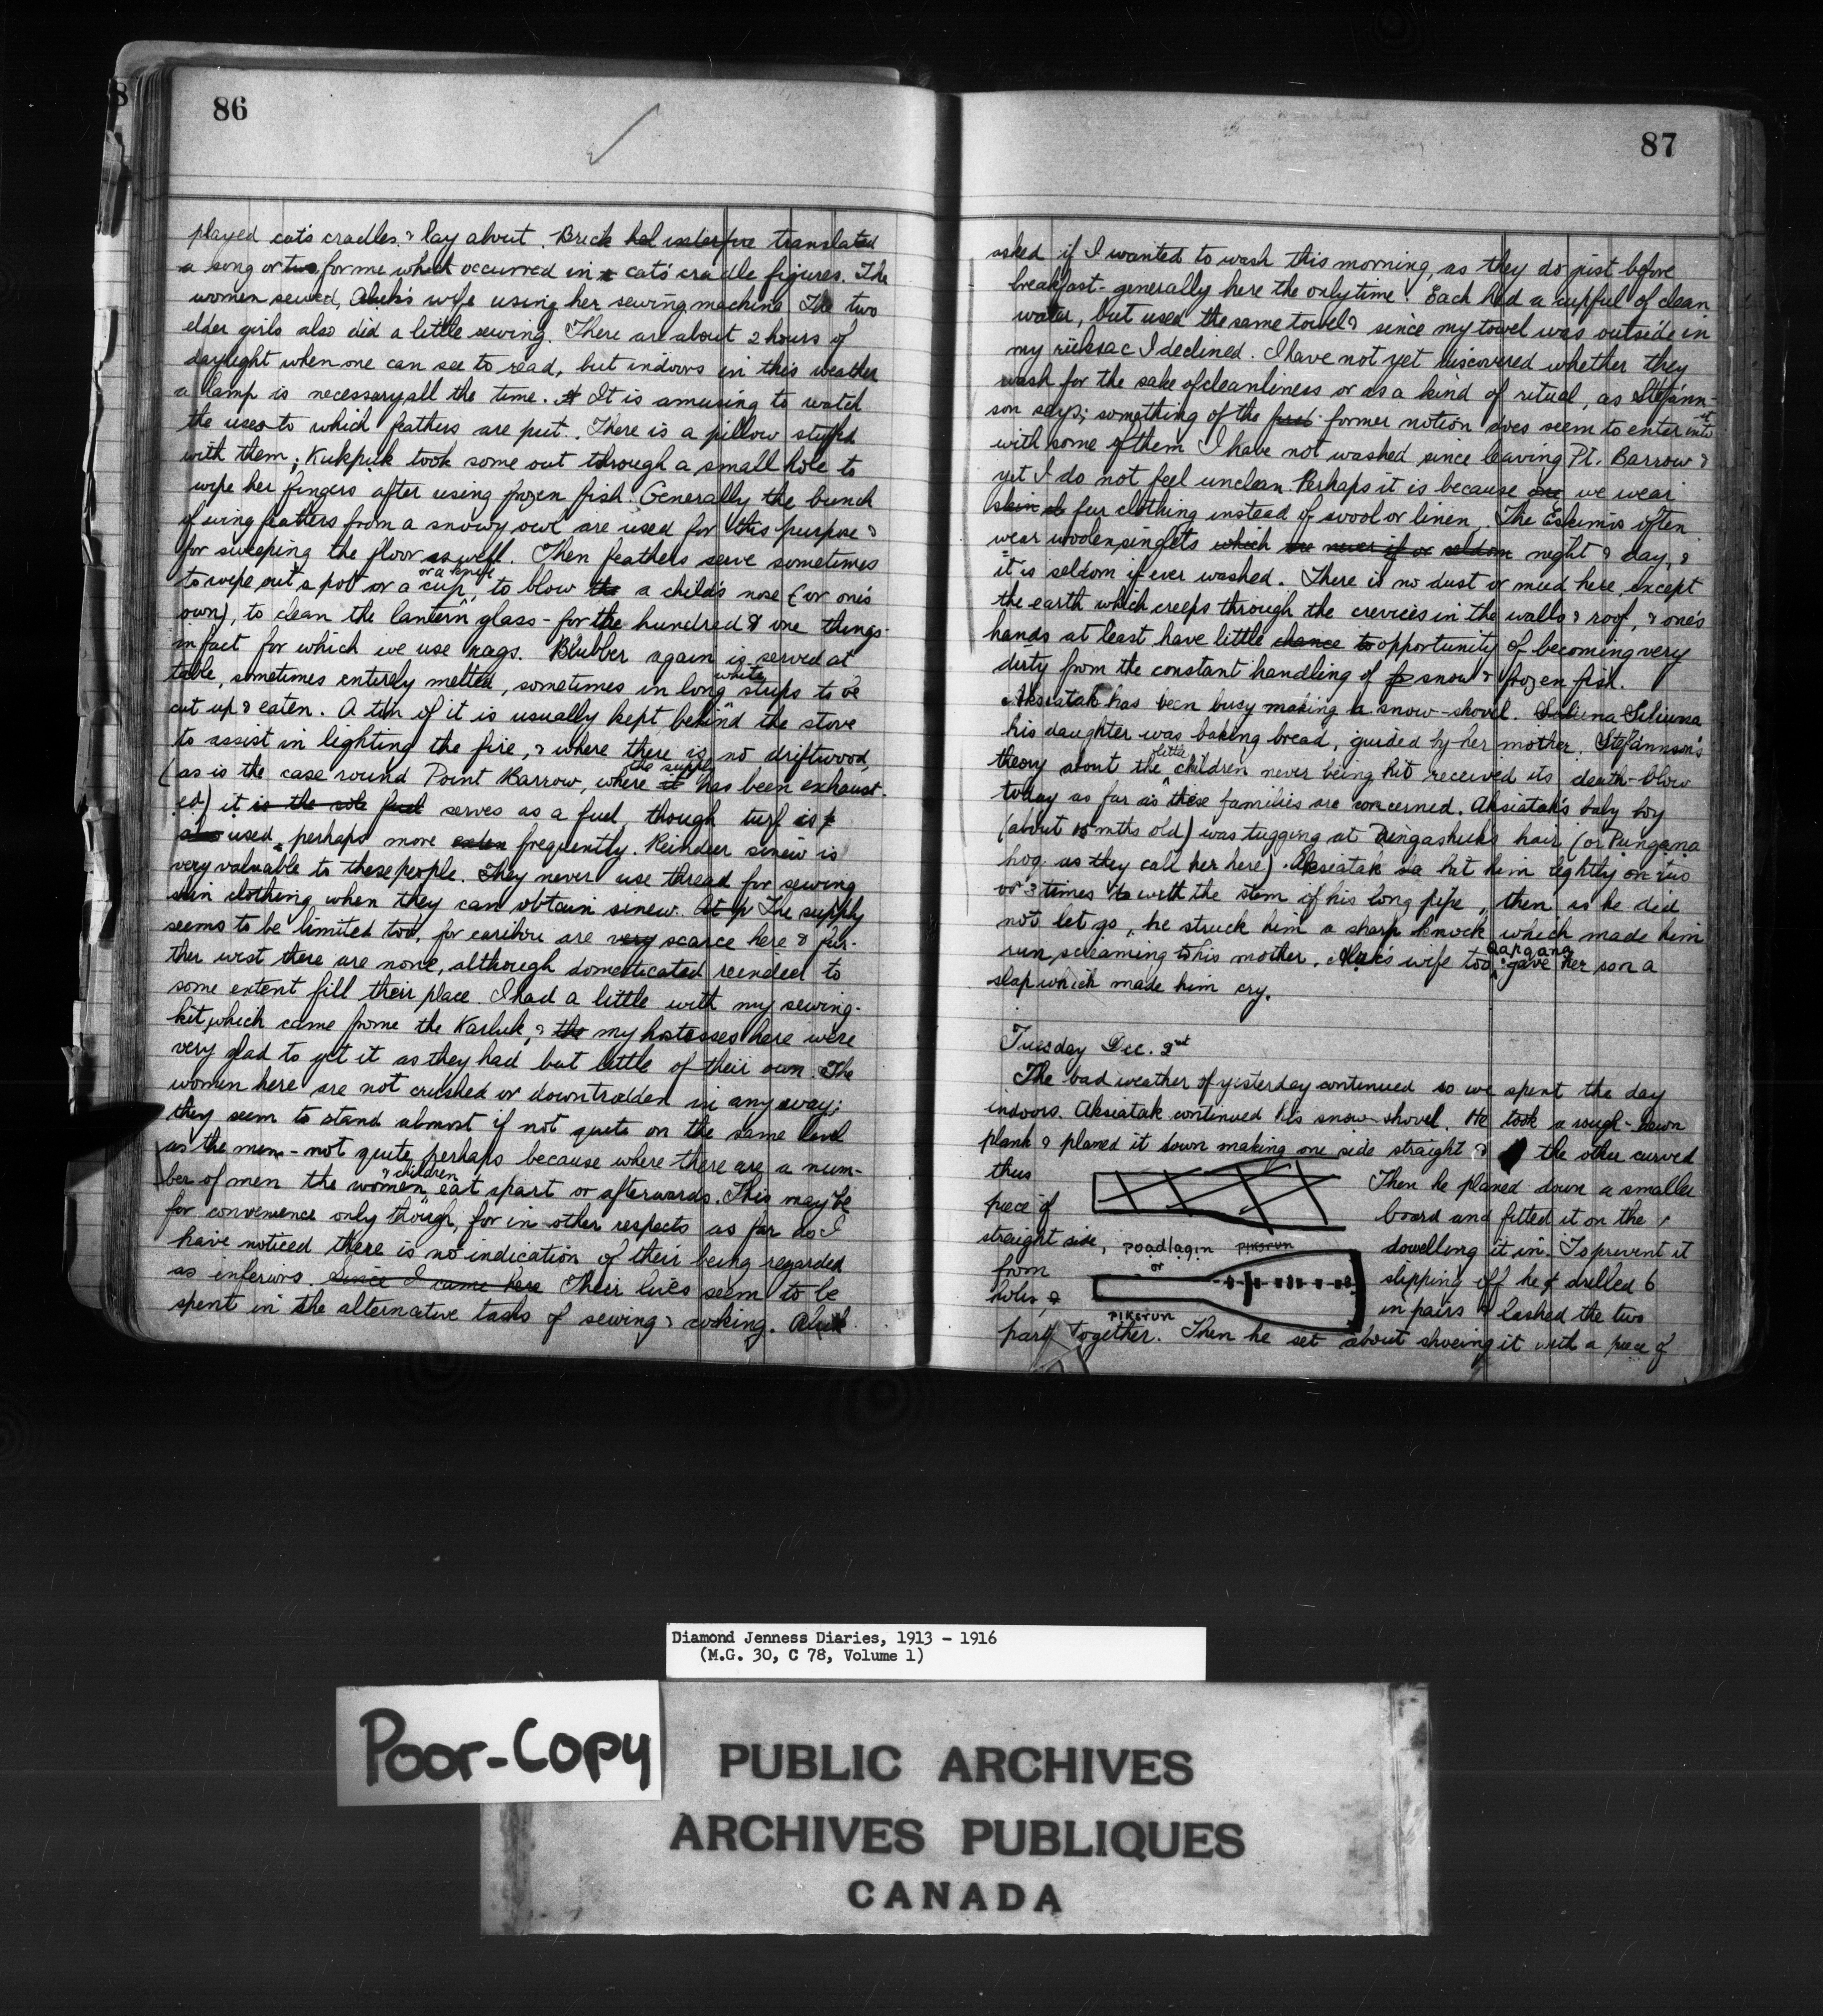 86
played cat's cradles & lay about. Brick translated
a song or two for me which occurred in cat's cradle figures. The
women sewed, Aluk's wife using her sewing machine. The two
elder girls also did a little sewing. There are about 2 hours of
daylight when one can see to read, but indoors in this weather
a lamp is necessary all the time. It is amusing to watch
the uses to which feathers are put. There is a pillow stuffed
with them; Kukpuk took some out through a small hole to
wipe her fingers after using frozen fish. Generally the bunch
of wing feathers from a snowy owl are used for this purpose &
for sweeping the floor as well. Then feathers serve sometimes
to wipe out a pot or a cup, or a knife to blow the a child's nose (or one's
own), to clean the lantern glass - for the hundred & one things
in fact for which we use rags. Blubber again is served at
table, sometimes entirely melted, sometimes in long white strips to be
cut up & eaten. A tin of it is usually kept behind the stove
to assist in lighting the fire, & where there is no driftwood,
(as is the case round Point Barrow, where it the supply has been exhaust-
ed) it is the sole fuel serves as a fuel, though turf is
also used, perhaps more often frequently. Reindeer sinew is
very valuable to these people. They never use thread for sewing
skin clothing when they can obtain sinew. The supply
seems to be limited too, for caribou are very scarce here & fur-
ther west there are none, although domesticated reindeer to
some extent fill their place. I had a little with my sewing-
kit, which came frome the Karluk, & the my hostesses here were
very glad to get it as they had but little of their own. The
women here are not crushed or downtrodden in any way;
they seem to stand almost if not quite on the same level
as the men - not quite perhaps because where there are a num-
ber of men the women & children eat apart or afterwards. This may be
for convenience only though, for in other respects as far as I
have noticed there is no indication of their being regarded
as inferiors. Since I came here Their lives seem to be
spent in the alternative tasks of sewing & cooking. Aluk
87
asked if I wanted to wash this morning, as they do just before
breakfast - generally here the only time. Each had a cupful of clean
water, but used the same towel & since my towel was outside in
my rücksac I declined. I have not yet discovered whether they
wash for the sake of cleanliness or as a kind of ritual, as Stefánn-
son says; something of the former notion does seem to enter into it
with some of them. I have not washed since leaving Pt. Barrow &
yet I do not feel unclean. Perhaps it is because one we wear
skin fur clothing instead of wool or linen. The Eskimos often
wear woolen singlets which are never if or seldom night & day, &
it is seldom if ever washed. There is no dust or mud here, except
the earth which creeps through the crevices in the walls & roof, & one's
hands at least have little chance to opportunity of becoming very
dirty from the constant handling of snow & frozen fish.
Aksiatak has been busy making a snow-shovel. Siliuna
his daughter was baking bread, guided by her mother. Stefánnson's
theory about the little children never being hit received its death-blow
today as far as these families are concerned. Aksiatak's baby boy
(about 15 mths old) was tugging at Pungashuk's hair (or Pungana
hog as they call her here). Aksiatak hit him lightly on two
or 3 times with the stem of his long pipe, then as he did
not let go, he struck him a sharp knock which made him
run, screaming to his mother. Aluk's wife too, Qapqana gave her son a
slap which made him cry.
Tuesday Dec. 2nd
The bad weather of yesterday continued so we spent the day
indoors. Aksiatak continued his snow-shovel. He took a rough-hewn
plank & planed it down making one side straight & the other curved
thus
Then he planed down a smaller
piece of
board and fitted it on the
straight side,
poadlagin piksrun
dowelling it in. To prevent it
from
or
slipping off he drilled 6
holes
in pairs & lashed the two
piksrun
parts together. Then he set about shoeing it with a piece of
Diamond Jenness Diaries, 1913 - 1916
(M.G. 30, C 78, Volume 1)
Poor-Copy
PUBLIC ARCHIVES
ARCHIVES PUBLIQUES
CANADA